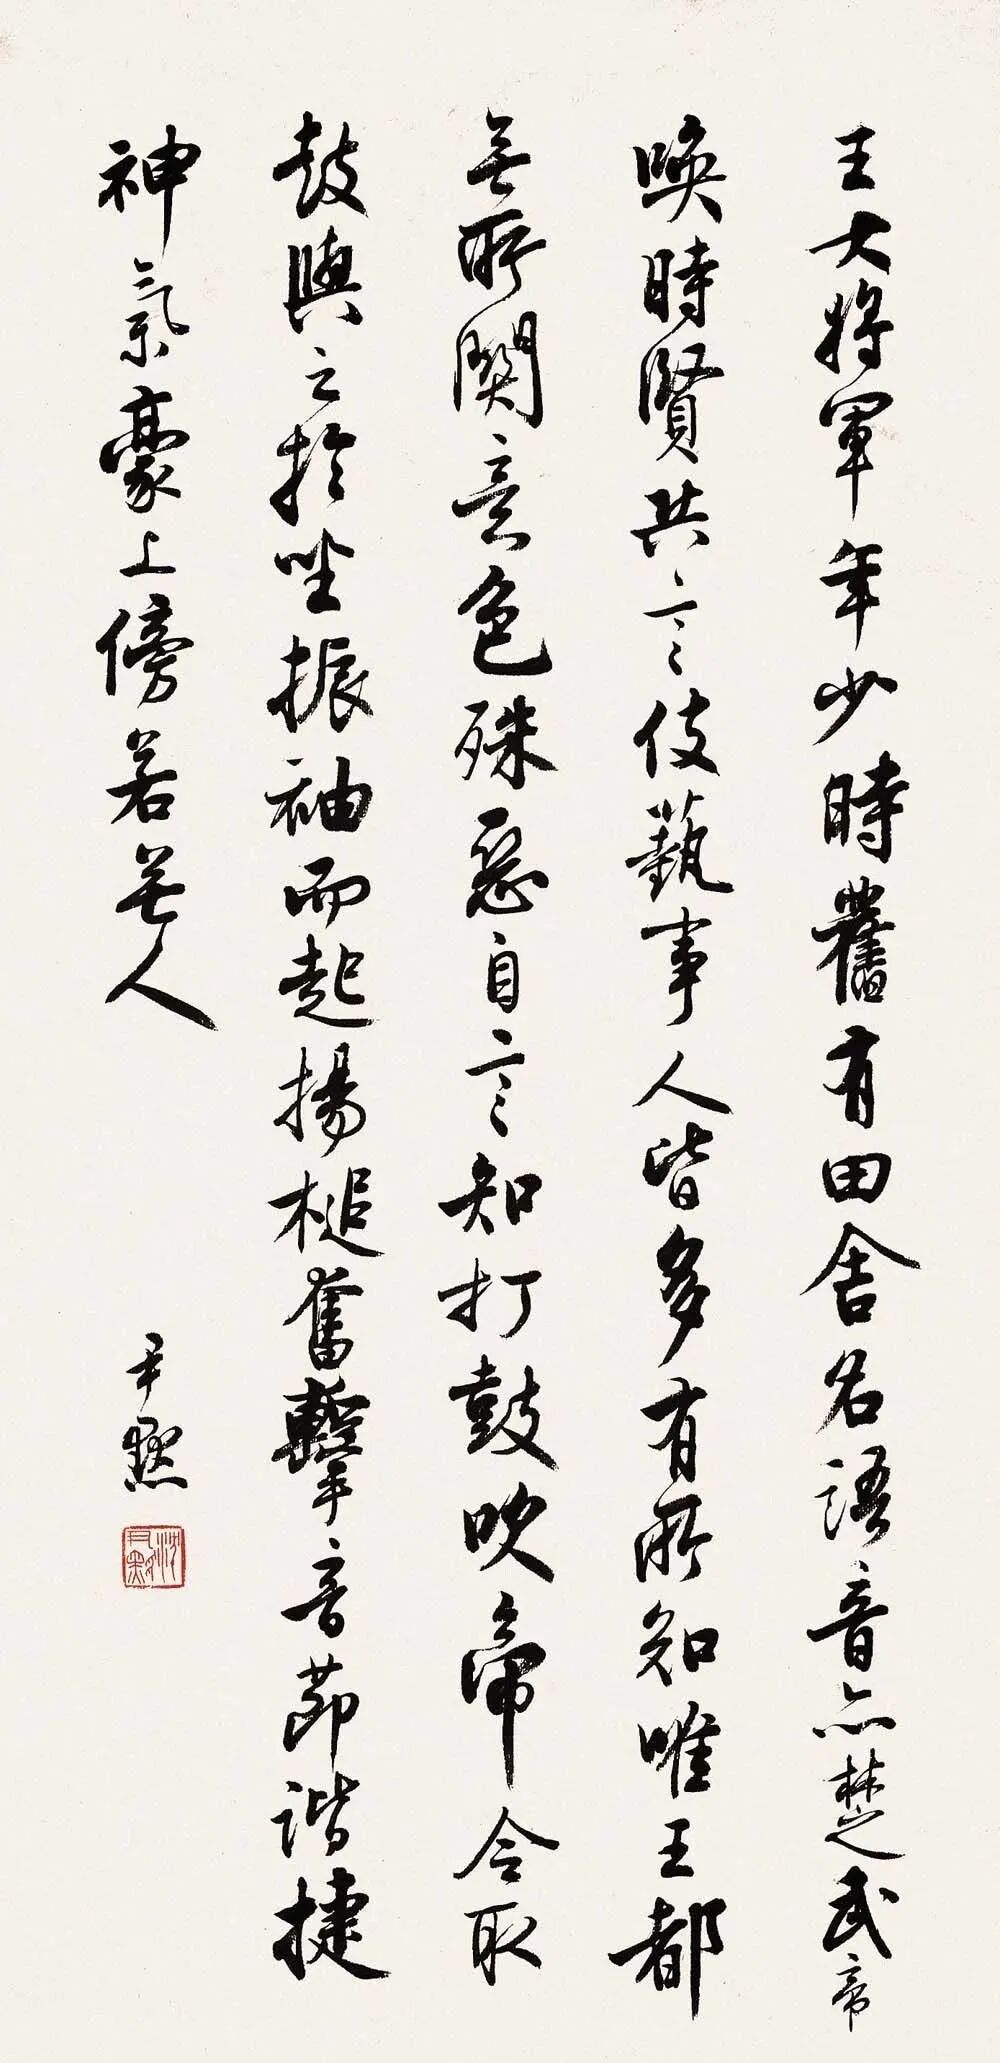 王大将軍年少時舊有田舍名語音亦楚武帝
喚時賢共言伎藝事人皆多有所知唯王都
無所關意色殊惡自言知打鼓吹帝令取
鼓與之於坐振袖而起揚槌奮擊音節諧捷
神氣豪上傍若無人
尹默
沈尹默